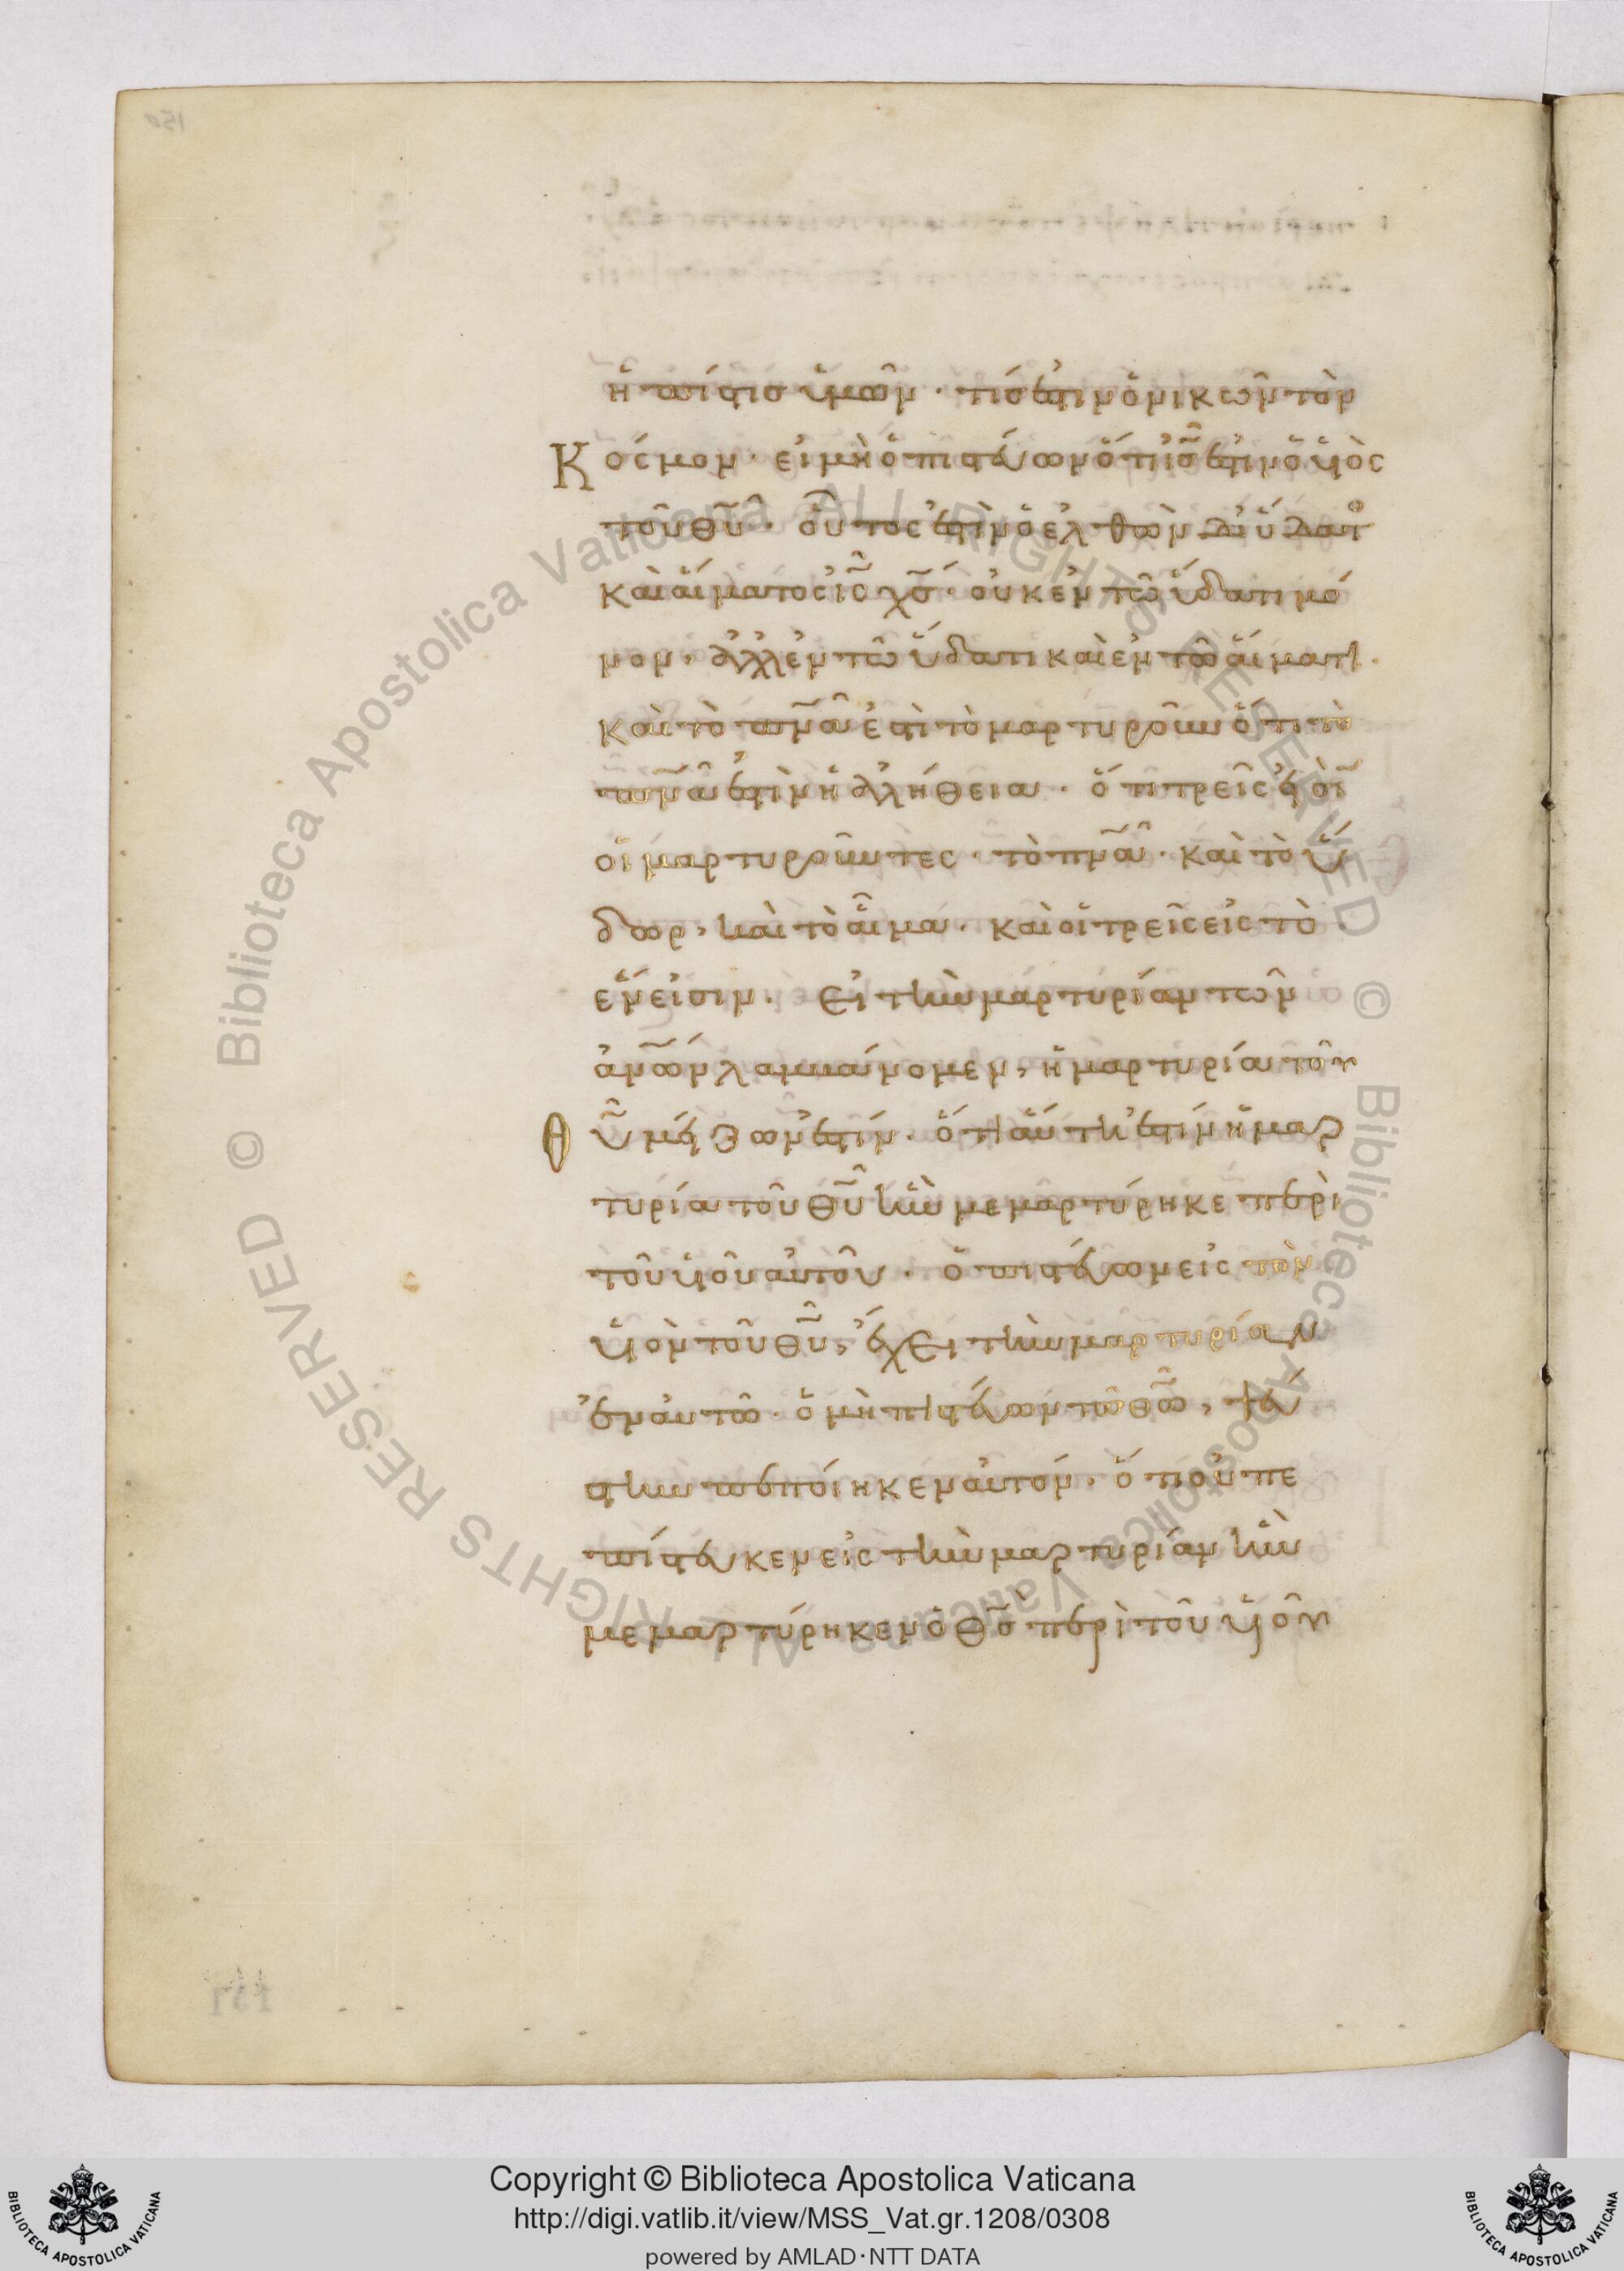 ἡ πίστισ ὑμῶν · τίσ ἐστιν ὁ νικῶν τὸν
Κόσμον · εἰ μὴ ὁ πιστεύων ὅτι ισ̅ ἐστιν ὁ υἱὸς
τοῦ θυ̅ · οὗτος ἐστὶν ὁ ἐλθὼν δι' ὕδατο
καὶ αἵματος ις̅ χσ̅ · οὐκ ἐν τῶ ὕδατι μό
νον, ἀλλ' ἐν τῶ ὕδατι καὶ ἐν τῶ αἵματι ·
καὶ τὸ πνα̅ ἐστὶ τὸ μαρτυροῦν ὅτι τὸ
πνα̅ ἐστὶν ἡ ἀλήθεια · ὅτι τρεῖς εἰσὶ
οἱ μαρτυροῦντες · τὸ πνα̅ · καὶ τὸ ὕ
δωρ, καὶ τὸ αἷμα · καὶ οἱ τρεῖς εἰς τὸ
ἕν εἰσιν · Εἰ τὴν μαρτυρίαν τῶν
ανων̅ λαμβάνομεν, ἡ μαρτυρία τοῦ
Θυ̅ μείζων ἐστίν · ὅτι αὕτη ἐστίν ἡ μαρ
τυρία τοῦ θυ̅ ἣν μεμαρτύρηκε περὶ
τοῦ υἱοῦ αὐτοῦ · ὁ πιστεύων εἰς τὸν
υἱὸν τοῦ θυ̅, ἔχει τὴν μαρτυρίαν
ἐν αὐτῶ · ὁ μὴ πιστεύων τῶ θω̅, ψεύ
στην πεποίηκεν αὐτόν · ὅτι οὐ πε
πίστευκεν εἰς τὴν μαρτυρίαν ἣν
μεμαρτύρηκεν ὁ θσ̅ περὶ τοῦ υἱοῦ
Copyright © Biblioteca Apostolica Vaticana
http://digi.vatlib.it/view/MSS_Vat.gr.1208/0308
powered by AMLAD·NTT DATA